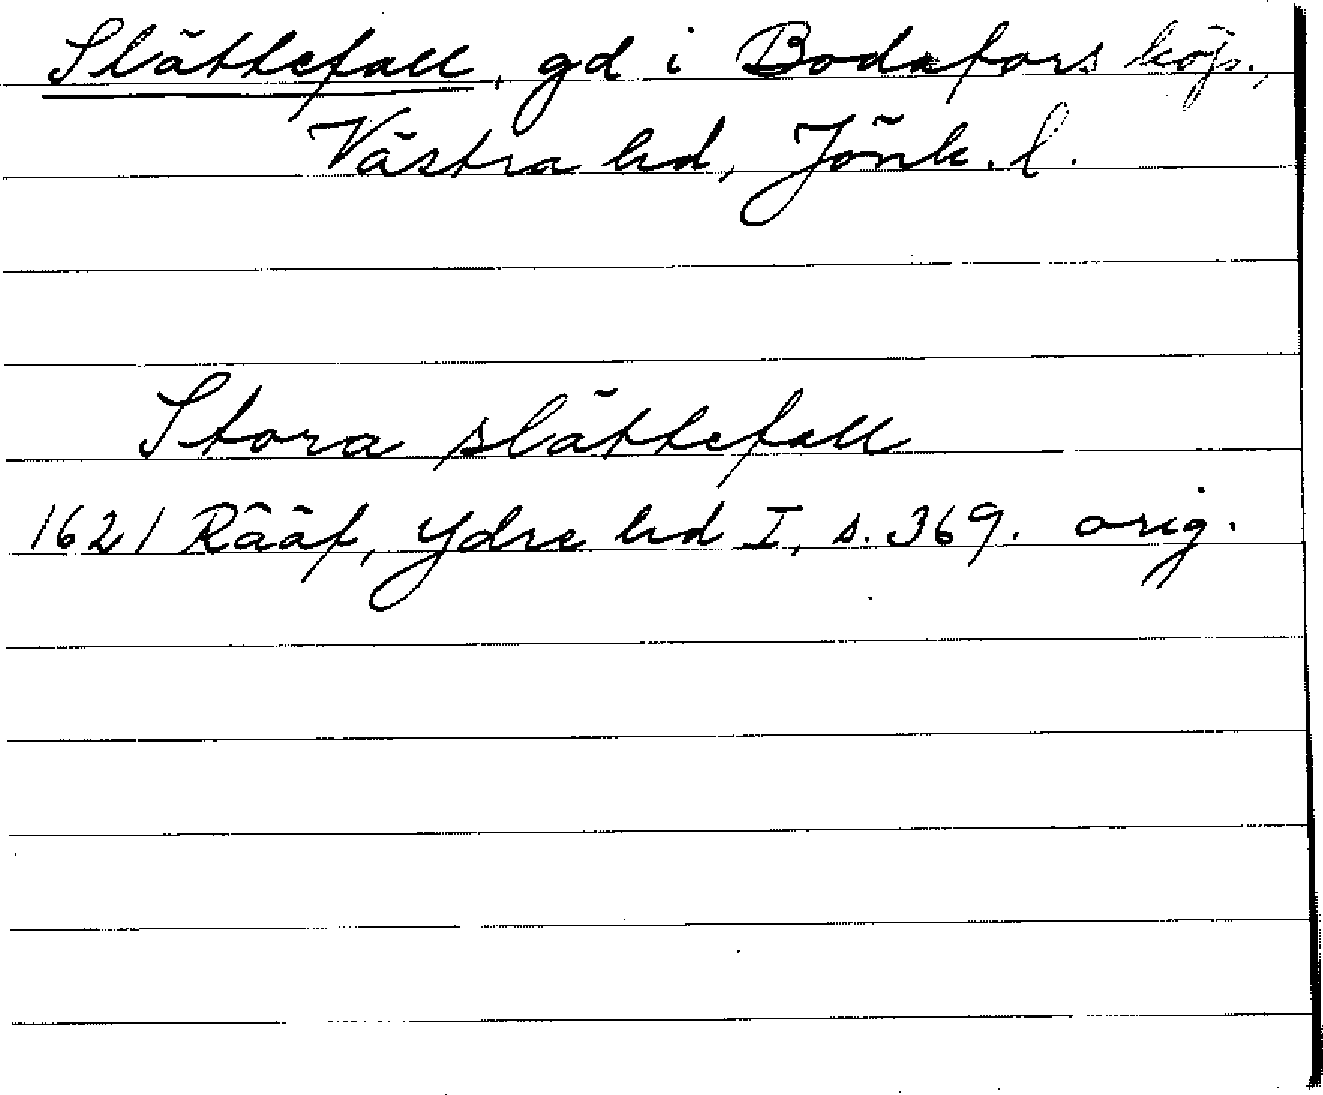 Slättefall, gd i Bodafors köp.,
Västra hd, Jönk. l.
Stora slättefall
1621 Rääf, Ydre hd I, s. 369. orig.